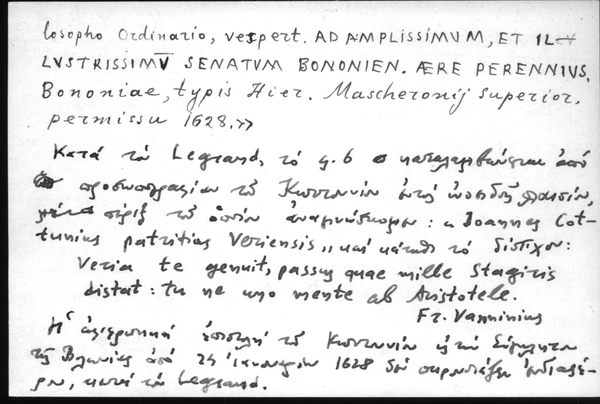 losopho Ordinario, vespert. AD AMPLISSIMVM, ET IL-
LVSTRISSIMV̄ SENATVM BONONIEN. ÆRE PERENNIVS,
Bononiae, typis Hier. Mascheronij superior.
permissu 1628.»
Κατά τὸν Legrand, τὸ φ. 6 καταλαμβάνεται ἀπό
προσωπογραφίαν τοῦ Κωττουνίου ἐντός ὠοειδοῦς πλαισίου,
πέριξ τοῦ ὁποίου ἀναγινώσκομεν: «Joannes Cot-
tunius patritius Veriensis», καί κάτωθι τὸ δίστιχον:
Veria te genuit, passus quae mille Stagiris
distat: tu ne uno mente ab Aristotele.
Fr. Vanninius
Ἡ ἀφιερωτική ἐπιστολή τοῦ Κωττουνίου εἰς τὴν Σύγκλητον
τῆς Βολωνίας ἀπό 24 Ἰανουαρίου 1628 δέν παρουσιάζει ἐνδιαφέ-
ρον, κατά τὸν Legrand.